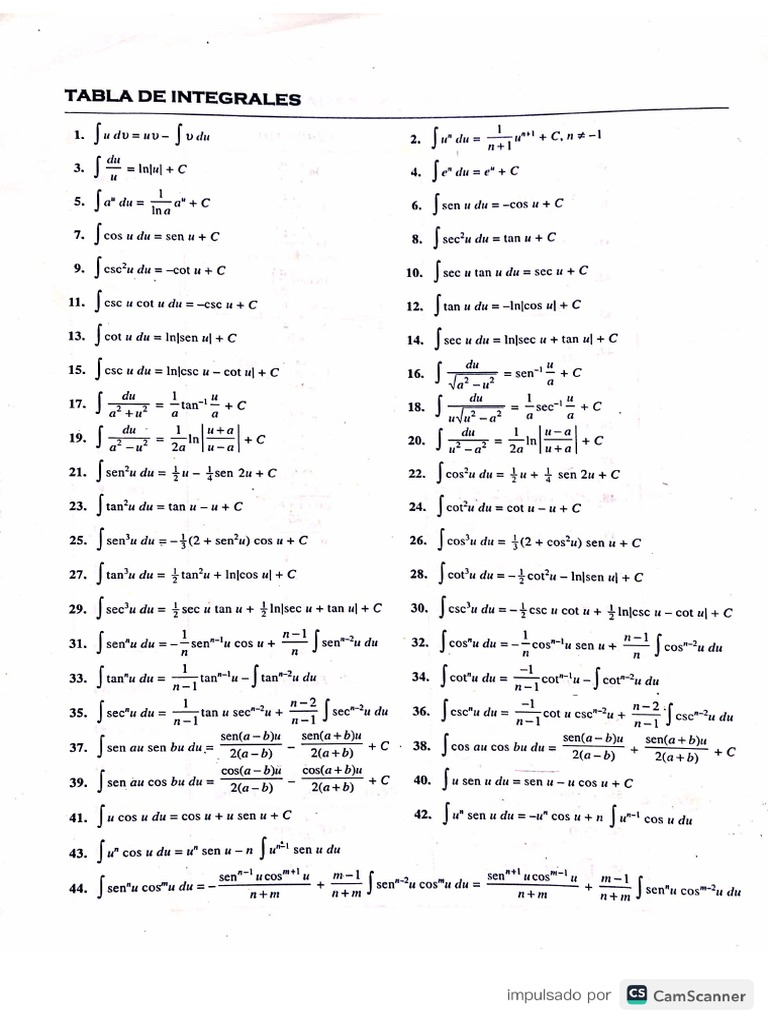 TABLA DE INTEGRALES
1. ∫u dυ = uυ − ∫υ du
2. ∫uⁿ du = 1/(n+1) uⁿ⁺¹ + C, n ≠ −1
3. ∫du/u = ln|u| + C
4. ∫eⁿ du = eᵘ + C
5. ∫aᵘ du = 1/(ln a) aᵘ + C
6. ∫sen u du = −cos u + C
7. ∫cos u du = sen u + C
8. ∫sec²u du = tan u + C
9. ∫csc²u du = −cot u + C
10. ∫sec u tan u du = sec u + C
11. ∫csc u cot u du = −csc u + C
12. ∫tan u du = −ln|cos u| + C
13. ∫cot u du = ln|sen u| + C
14. ∫sec u du = ln|sec u + tan u| + C
15. ∫csc u du = ln|csc u − cot u| + C
16. ∫du/√(a² − u²) = sen⁻¹ u/a + C
17. ∫du/(a² + u²) = 1/a tan⁻¹ u/a + C
18. ∫du/(u√(u² − a²)) = 1/a sec⁻¹ u/a + C
19. ∫du/(a² − u²) = 1/2a ln|(u + a)/(u − a)| + C
20. ∫du/(u² − a²) = 1/2a ln|(u − a)/(u + a)| + C
21. ∫sen²u du = ½u − ¼sen 2u + C
22. ∫cos²u du = ½u + ¼ sen 2u + C
23. ∫tan²u du = tan u − u + C
24. ∫cot²u du = cot u − u + C
25. ∫sen³u du = −⅓(2 + sen²u) cos u + C
26. ∫cos³u du = ⅓(2 + cos²u) sen u + C
27. ∫tan³u du = ½tan²u + ln|cos u| + C
28. ∫cot³u du = −½cot²u − ln|sen u| + C
29. ∫sec³u du = ½sec u tan u + ½ln|sec u + tan u| + C
30. ∫csc³u du = −½csc u cot u + ½ln|csc u − cot u| + C
31. ∫senⁿu du = −1/n senⁿ⁻¹u cos u + (n−1)/n ∫senⁿ⁻²u du
32. ∫cosⁿu du = −1/n cosⁿ⁻¹u sen u + (n−1)/n ∫cosⁿ⁻²u du
33. ∫tanⁿu du = 1/(n−1) tanⁿ⁻¹u − ∫tanⁿ⁻²u du
34. ∫cotⁿu du = −1/(n−1) cotⁿ⁻¹u − ∫cotⁿ⁻²u du
35. ∫secⁿu du = 1/(n−1) tan u secⁿ⁻²u + (n−2)/(n−1) ∫secⁿ⁻²u du
36. ∫cscⁿu du = −1/(n−1) cot u cscⁿ⁻²u + (n−2)/(n−1) ∫cscⁿ⁻²u du
37. ∫sen au sen bu du = sen(a − b)u/2(a − b) − sen(a + b)u/2(a + b) + C
38. ∫cos au cos bu du = sen(a − b)u/2(a − b) + sen(a + b)u/2(a + b) + C
39. ∫sen au cos bu du = cos(a − b)u/2(a − b) − cos(a + b)u/2(a + b) + C
40. ∫u sen u du = sen u − u cos u + C
41. ∫u cos u du = cos u + u sen u + C
42. ∫uⁿ sen u du = −uⁿ cos u + n ∫uⁿ⁻¹ cos u du
43. ∫uⁿ cos u du = uⁿ sen u − n ∫uⁿ⁻¹ sen u du
44. ∫senⁿu cosᵐu du = − senⁿ⁻¹ u cosᵐ⁺¹ u/(n + m) + (m−1)/(n+m) ∫senⁿ⁻²u cosᵐu du = senⁿ⁺¹ u cosᵐ⁻¹ u/(n + m) + (m−1)/(n+m) ∫senⁿu cosᵐ⁻²u du
impulsado por CS CamScanner